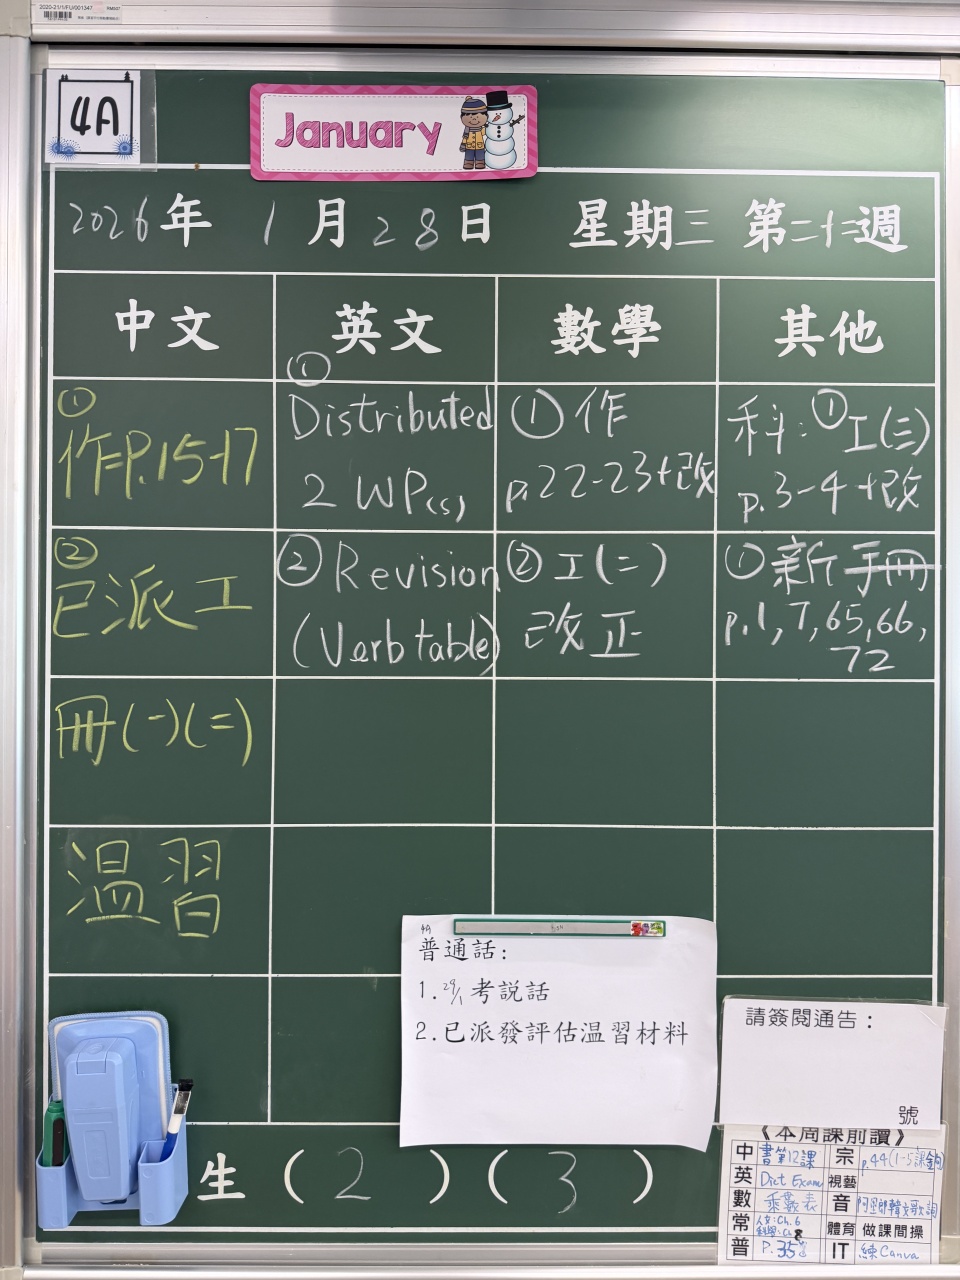 2020-21/1/FU/001347
4A
January
2026年 1月28日 星期三 第二十二週
中文
英文
數學
其他
①
作P.15-17
②
已派工
冊(一)(二)
温習
①
Distributed
2 WP(s)
② Revision
(Verb table)
① 作
p.22-23+改
② 工(二)
改正
科:① 工(三)
p.3-4+改
① 新手冊
p.1, 7, 65, 66,
72
4A
普通話:
1. 29/1 考説話
2. 已派發評估温習材料
請簽閱通告:
號
生 ( 2 ) ( 3 )
《本周課前讀》
中 書第12課
宗 p.44(1-5課金句)
英 Dict Exam
視藝
數 乘數表
音
常 人文:Ch.6
科學:Ch.8
體育 做課間操
普 P.35
IT 練Canva